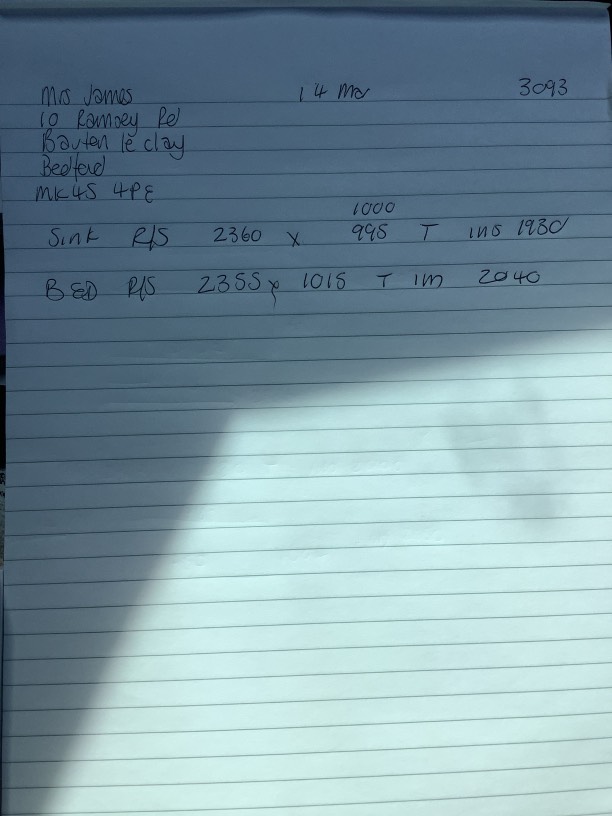 Mrs James 14 Mar 3093
10 Ramsey Rd
Bauten le clay
Bedford
MK45 4PE
1000
Sink R/S 2360 x 995 T ins 1930
BED R/S 2355 x 1015 T im 2040